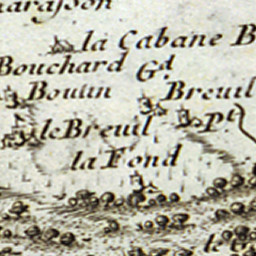 la Cabane B
Bouchard Gd
Bouun Breuil
le Breuil Pt
la Fond